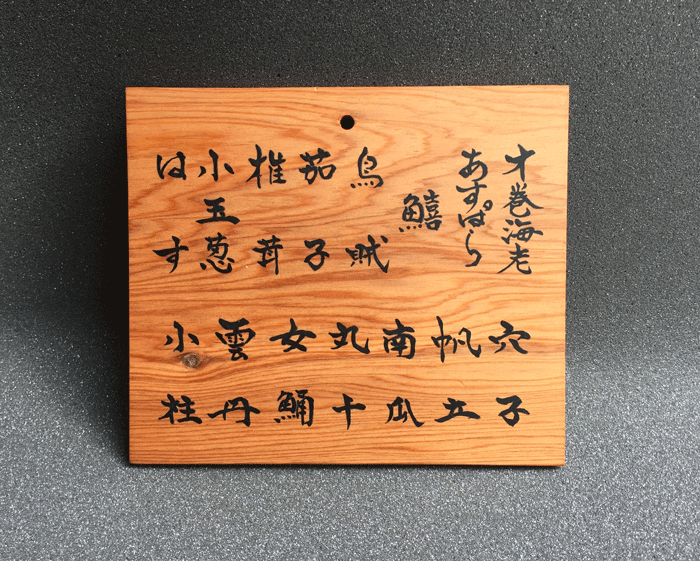 才巻海老
あすぱら
鱚
烏賊
茄子
椎茸
小玉葱
はす
穴子
帆立
南瓜
丸十
女鯒
雲丹
小柱